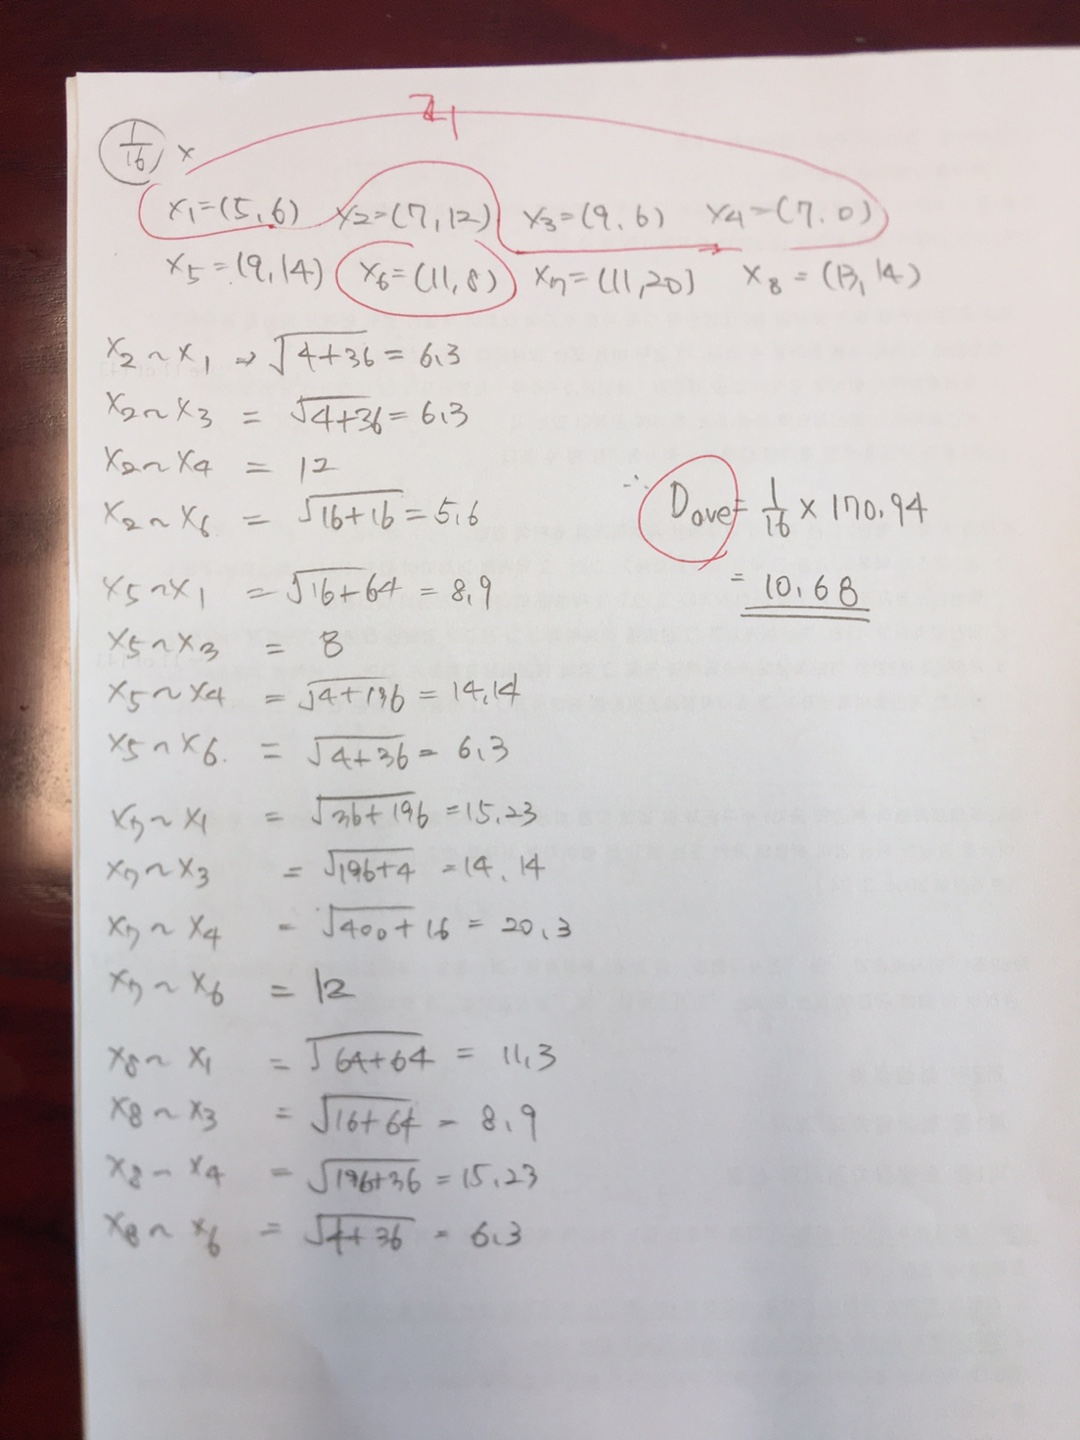 Z1
1/16 ×
X1=(5,6) X2=(7,12) X3=(9.6) X4=(7.0)
X5=(9,14) X6=(11,8) X7=(11,20) X8=(13,14)
X2~X1 ⇒ √4+36 = 6.3
X2~X3 = √4+36 = 6.3
X2~X4 = 12
X2~X6 = √16+16 = 5.6
∴ Dave = 1/16 × 170.94
= 10.68
X5~X1 = √16+64 = 8.9
X5~X3 = 8
X5~X4 = √4+196 = 14.14
X5~X6. = √4+36 = 6.3
X7~X1 = √36+196 = 15.23
X7~X3 = √196+4 = 14.14
X7~X4 = √400+16 = 20.3
X7~X6 = 12
X8~X1 = √64+64 = 11.3
X8~X3 = √16+64 = 8.9
X8~X4 = √196+36 = 15.23
X8~X6 = √4+36 = 6.3